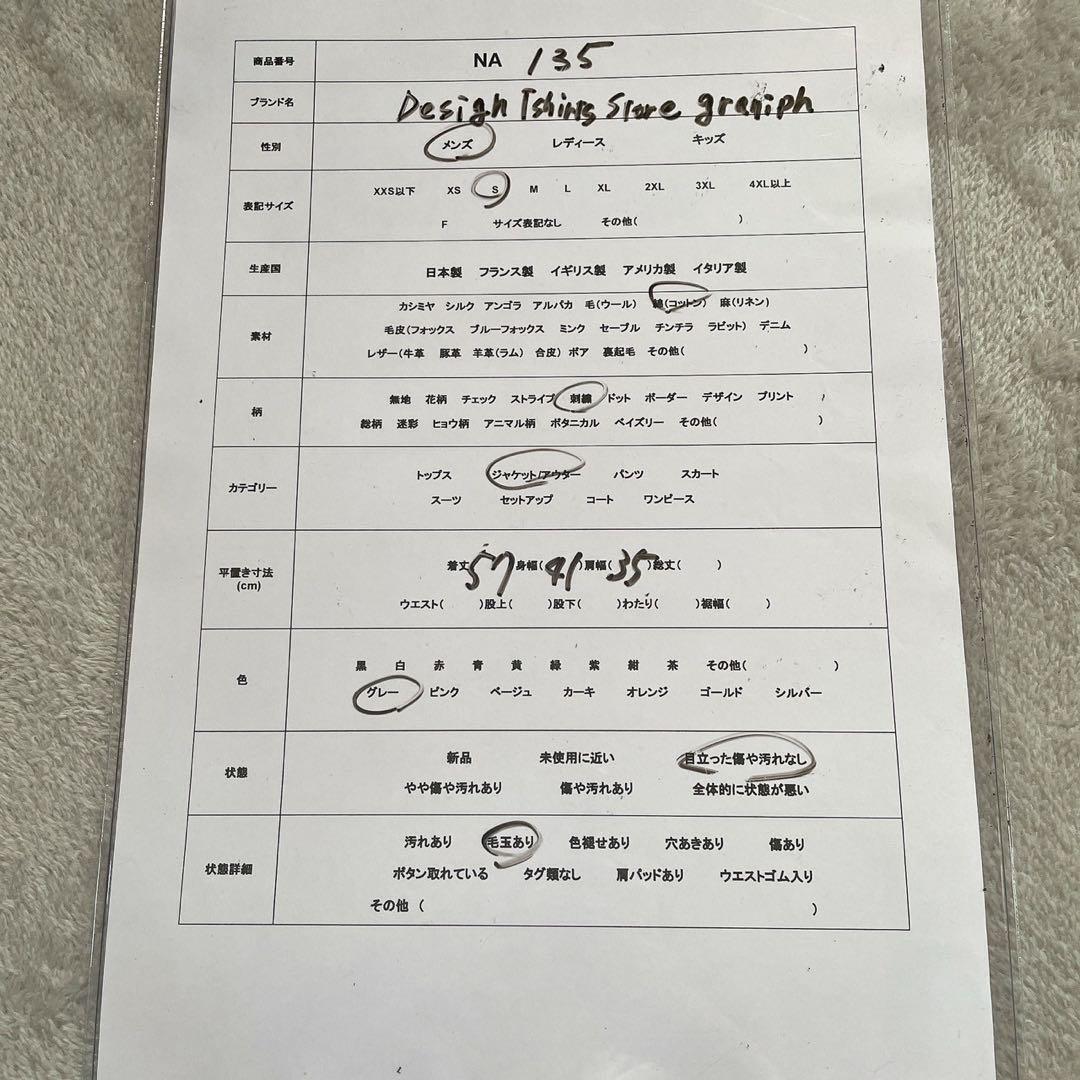 商品番号 NA 135
ブランド名 Design Tshirts Store graniph
性別 メンズ レディース キッズ
表記サイズ XXS以下 XS S M L XL 2XL 3XL 4XL以上
F サイズ表記なし その他( )
生産国 日本製 フランス製 イギリス製 アメリカ製 イタリア製
素材 カシミヤ シルク アンゴラ アルパカ 毛(ウール) 綿(コットン) 麻(リネン)
毛皮(フォックス ブルーフォックス ミンク セーブル チンチラ ラビット) デニム
レザー(牛革 豚革 羊革(ラム) 合皮) ボア 裏起毛 その他( )
柄 無地 花柄 チェック ストライプ 刺繍 ドット ボーダー デザイン プリント
総柄 迷彩 ヒョウ柄 アニマル柄 ボタニカル ペイズリー その他( )
カテゴリー トップス ジャケット/アウター パンツ スカート
スーツ セットアップ コート ワンピース
平置き寸法 (cm) 着丈 57 身幅( 41 )肩幅( 35 )総丈( )
ウエスト( )股上( )股下( )わたり( )裾幅( )
色 黒 白 赤 青 黄 緑 紫 紺 茶 その他( )
グレー ピンク ベージュ カーキ オレンジ ゴールド シルバー
状態 新品 未使用に近い 目立った傷や汚れなし
やや傷や汚れあり 傷や汚れあり 全体的に状態が悪い
状態詳細 汚れあり 毛玉あり 色褪せあり 穴あきあり 傷あり
ボタン取れている タグ類なし 肩パッドあり ウエストゴム入り
その他 ( )